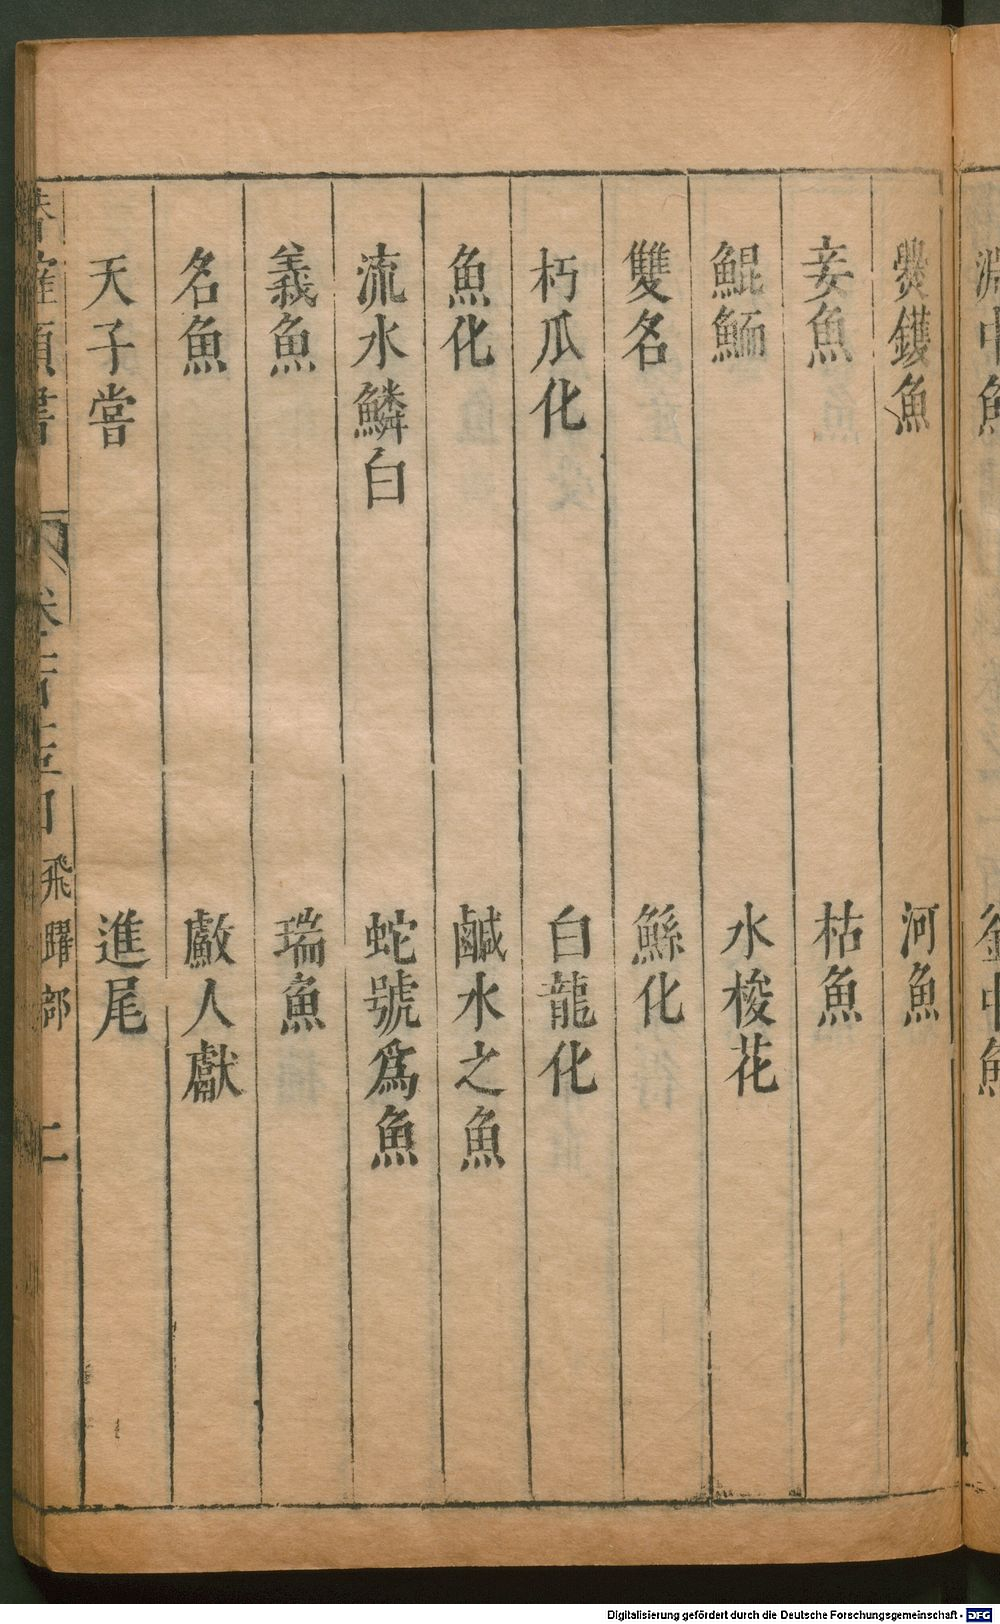 爕鑊魚　河魚
妾魚　枯魚
鯤鮞　水梭花
雙名　鯀化
朽瓜化　白龍化
魚化　鹹水之魚
流水鱗白　蛇號爲魚
義魚　瑞魚
名魚　𠪱人獻
天子嘗　進尾
飛躍部　二
Digitalisierung gefördert durch die Deutsche Forschungsgemeinschaft - DFG